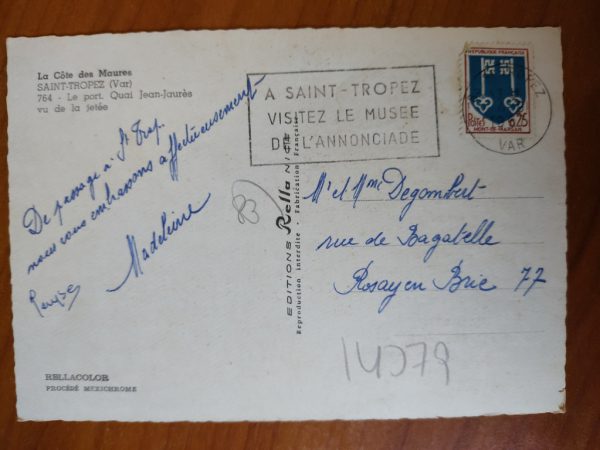 La Côte des Maures
SAINT-TROPEZ (Var)
764 - Le port. Quai Jean-Jaurès
vu de la jetée
De passage à St Trop.
nous vous embrassons affectueusement
Madeleine
83
RELLACOLOR
PROCÉDÉ MEXICHROME
EDITIONS Rella NICE
Reproduction interdite - Fabrication Française
A SAINT-TROPEZ
VISITEZ LE MUSEE
DE L'ANNONCIADE
REPUBLIQUE FRANÇAISE
0,25
POSTES
MONT-DE-MARSAN
VAR
Mr et Mme Degombert
rue de Bagatelle
Rosay en Brie 77